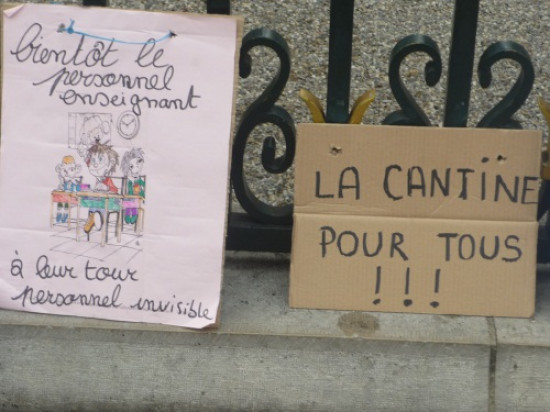 bientôt le
personnel
enseignant
à leur tour
personnel invisible
LA CANTINE
POUR TOUS
!!!